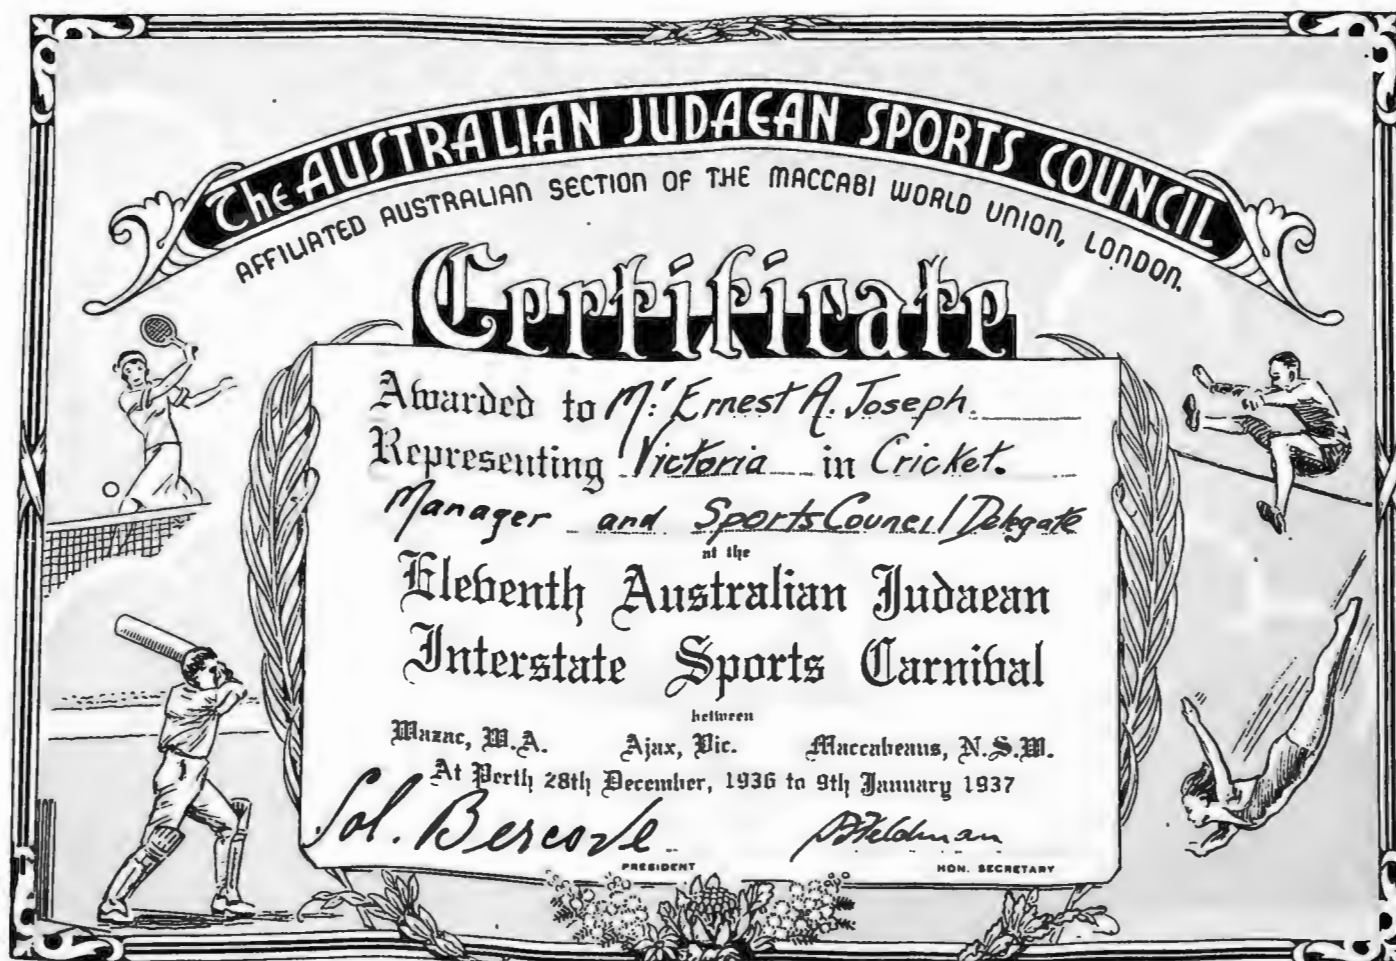 The AUSTRALIAN JUDAEAN SPORTS COUNCIL
AFFILIATED AUSTRALIAN SECTION OF THE MACCABI WORLD UNION, LONDON.
Certificate
Awarded to Mr. Ernest A. Joseph.
Representing Victoria in Cricket.
Manager and Sports Council Delegate
at the
Eleventh Australian Judaean
Interstate Sports Carnival
between
Wazac, W.A. Ajax, Vic. Maccabeans, N.S.W.
At Perth 28th December, 1936 to 9th January 1937
Sol. Bercove Feldman
PRESIDENT HON. SECRETARY